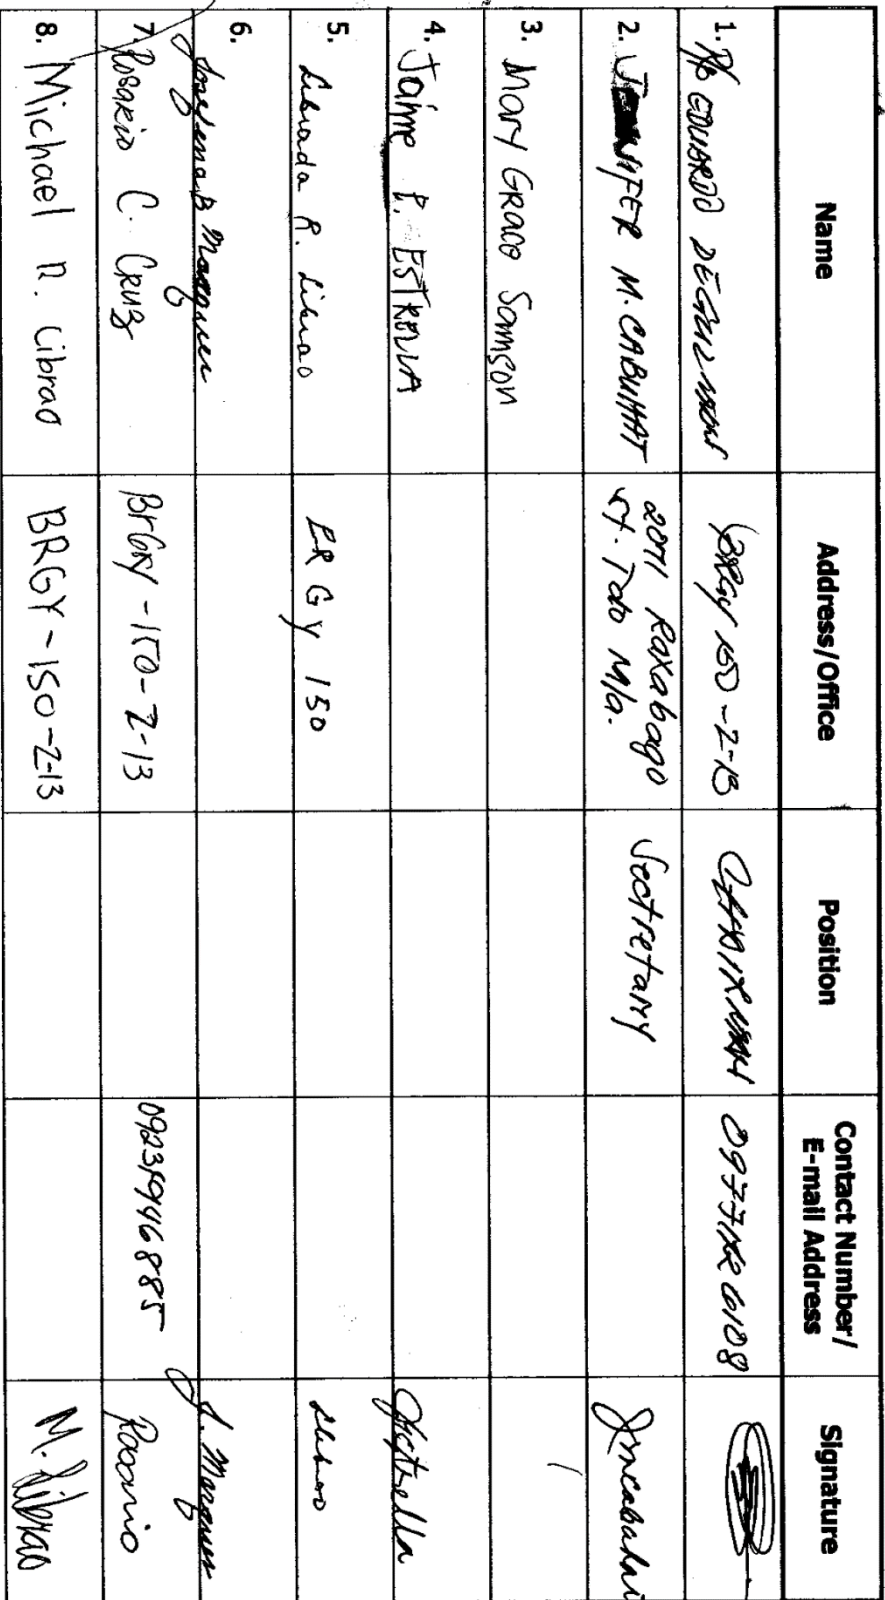 Name Address/Office Position Contact Number/ E-mail Address Signature
1. P/B EDUARDO BRGY 150-Z-13 CHAIRMAN
2. JENNIFER M. CABUHAT 2071 Raxabago St. Tdo M/a. Sectretary
3. Mary Grace Samson
4. Jaime P. ESTRELLA Estrella
5. Librada R. Librao BRGY 150 Librao
6. Josefina B Marquez J. Marquez
7. Rosario C. Cruz BrGy-150-Z-13 Rosario
8. Michael R. Librao BRGY-150-Z-13 M. Librao